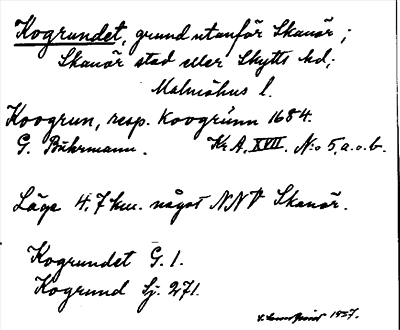 Kogrundet, grund utanför Skanör;
Skanör stad eller Skytts hd;
Malmöhus l.
Koogrun, resp. Koogrůnn 1684.
G. Buhrmann. Kr.A. XVII. N:o 5, a.o.b.
Läge 4,7 km. något NNV Skanör.
Kogrundet G. 1.
Kogrund Sj. 271.
1927.